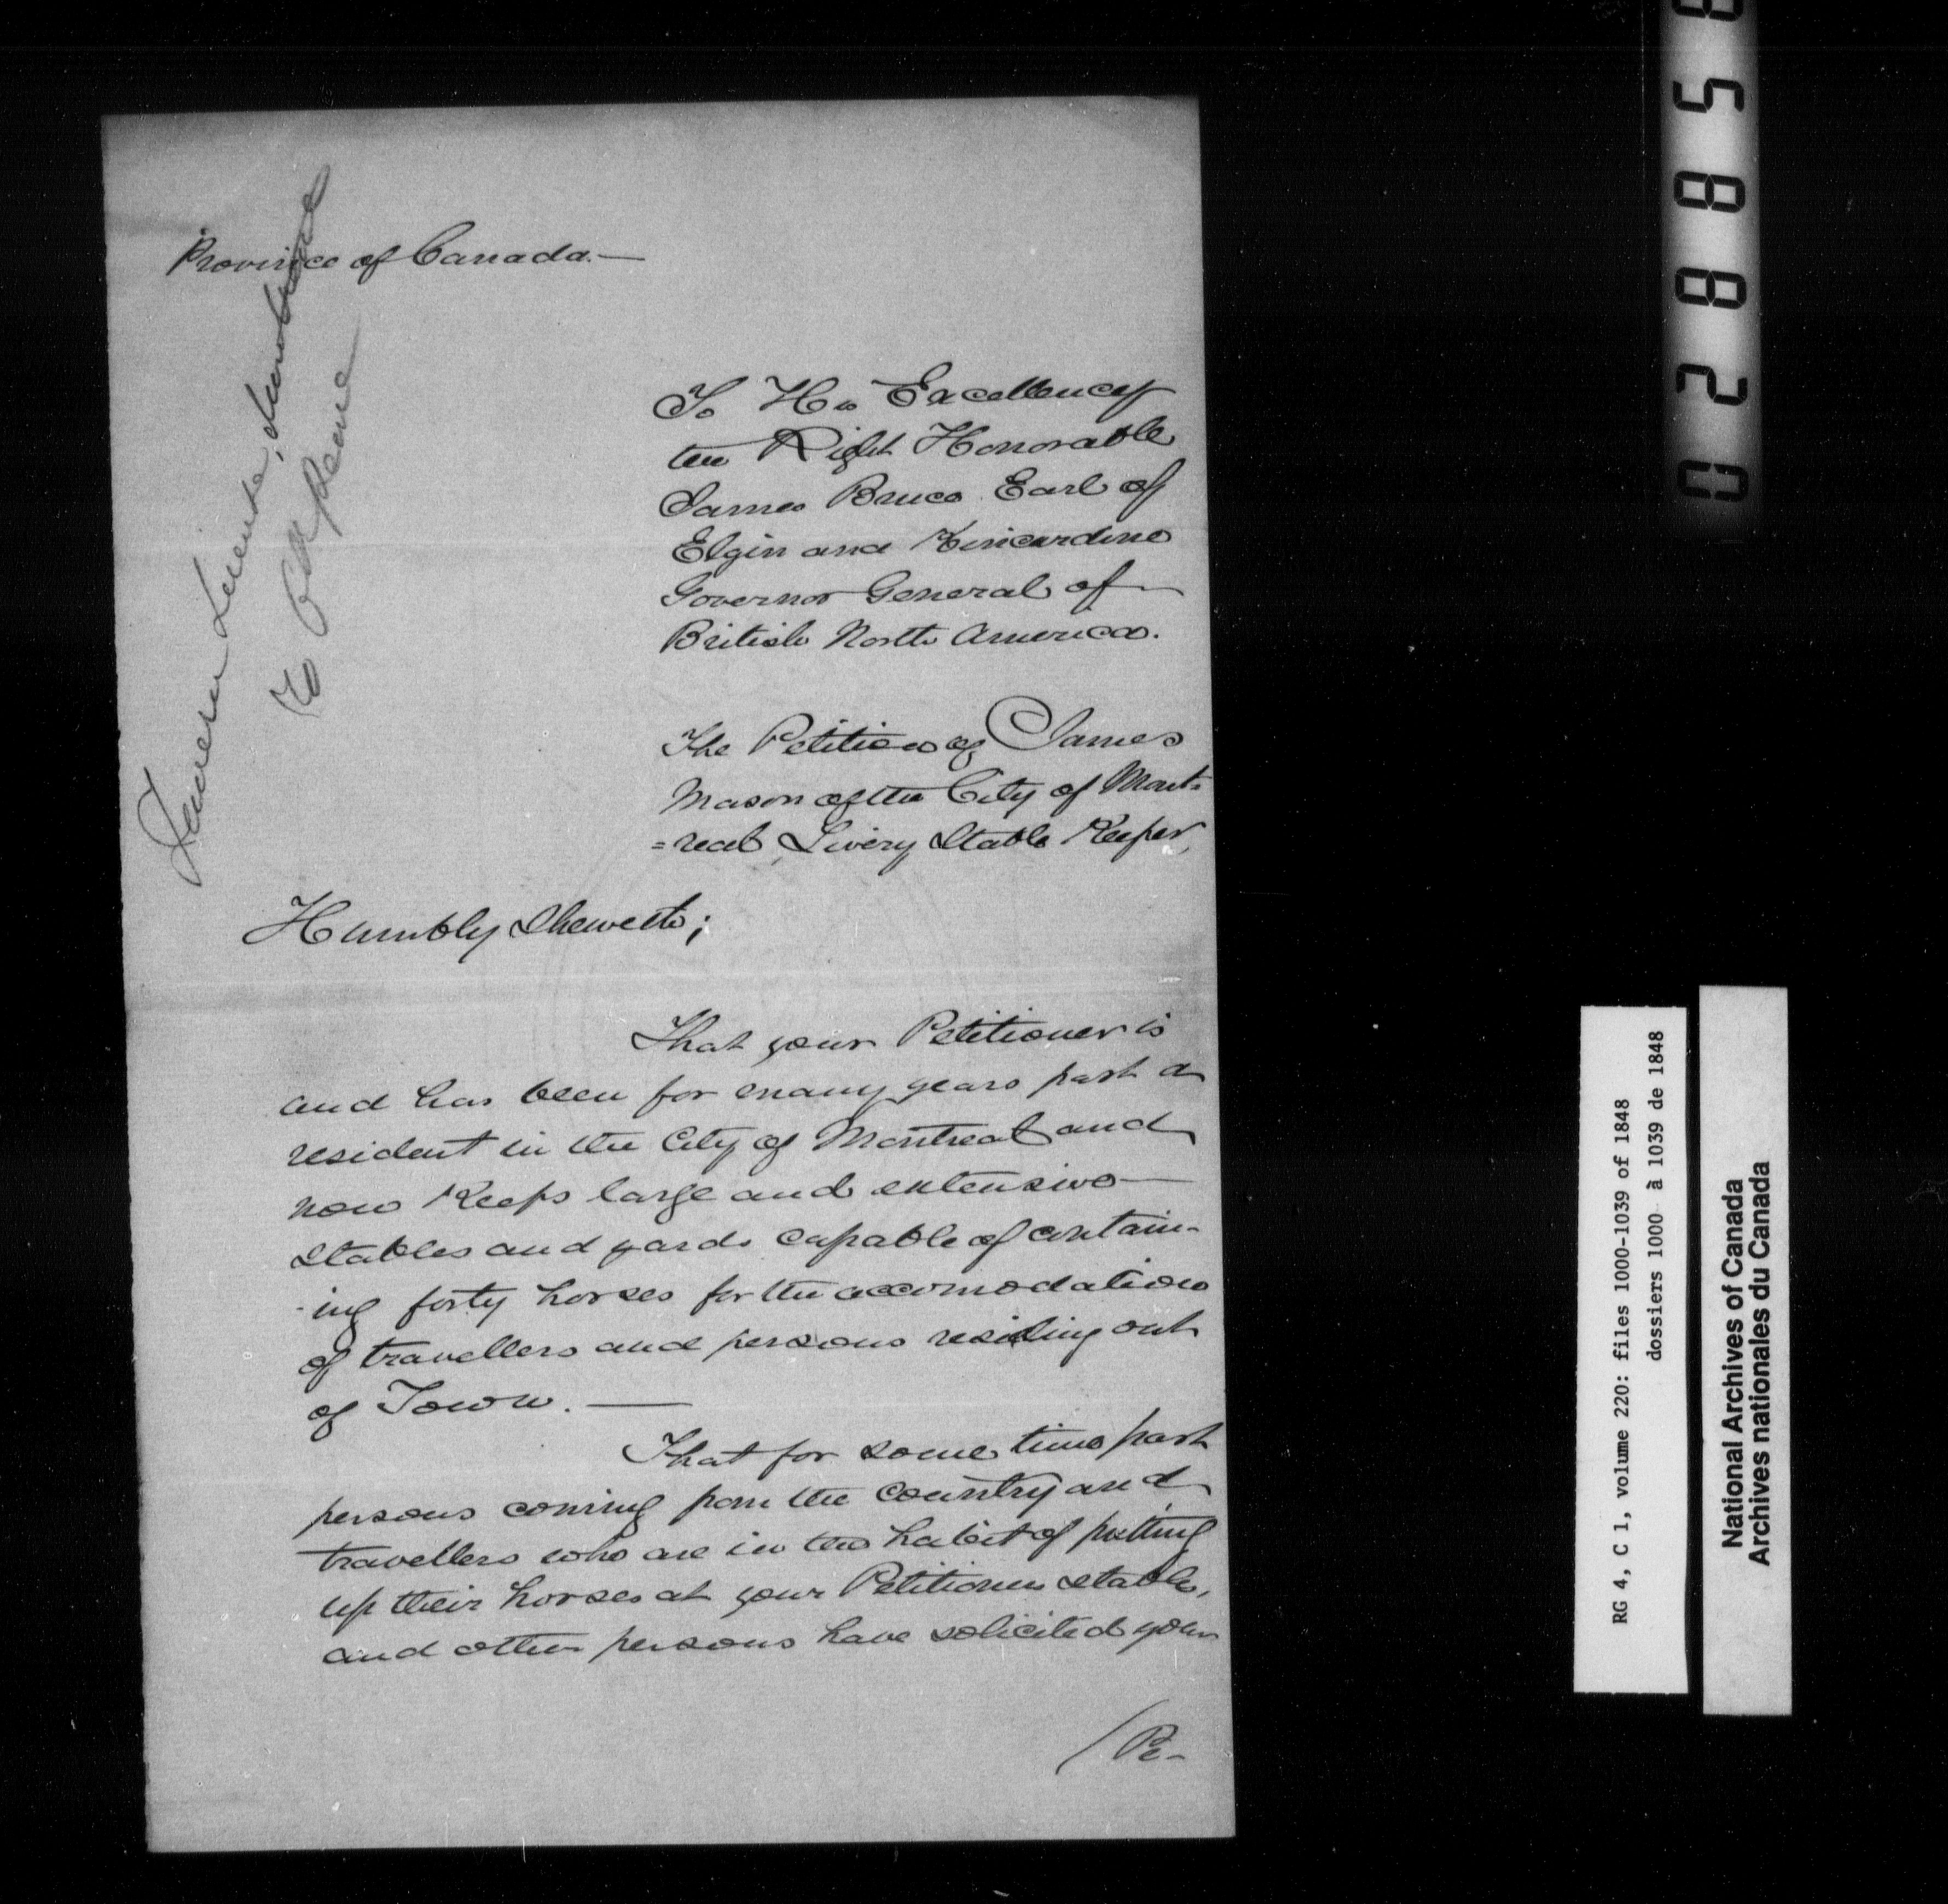 Province of Canada.—
To His Excellency
the Right Honorable
James Bruce Earl of
Elgin and Kincardine
Governor General of
British North America.
The Petition of James
Mason of the City of Mont-
=real Livery Stable Keeper,
Humbly Sheweth;
That your Petitioner is
and has been for many years past a
resident in the City of Montreal and
now Keeps large and extensive—
stables and yards capable of contain-
-ing forty horses for the accomodation
of travellers and persons residing out
of Town. —
That for some time past
persons coming from the country and
travellers who are in the habit of putting
up their horses at your Petitioners stable,
and other persons have solicited your
/Pe-
Tavern License,
028858
RG 4, C 1, volume 220: files 1000-1039 of 1848
dossiers 1000 à 1039 de 1848
National Archives of Canada
Archives nationales du Canada